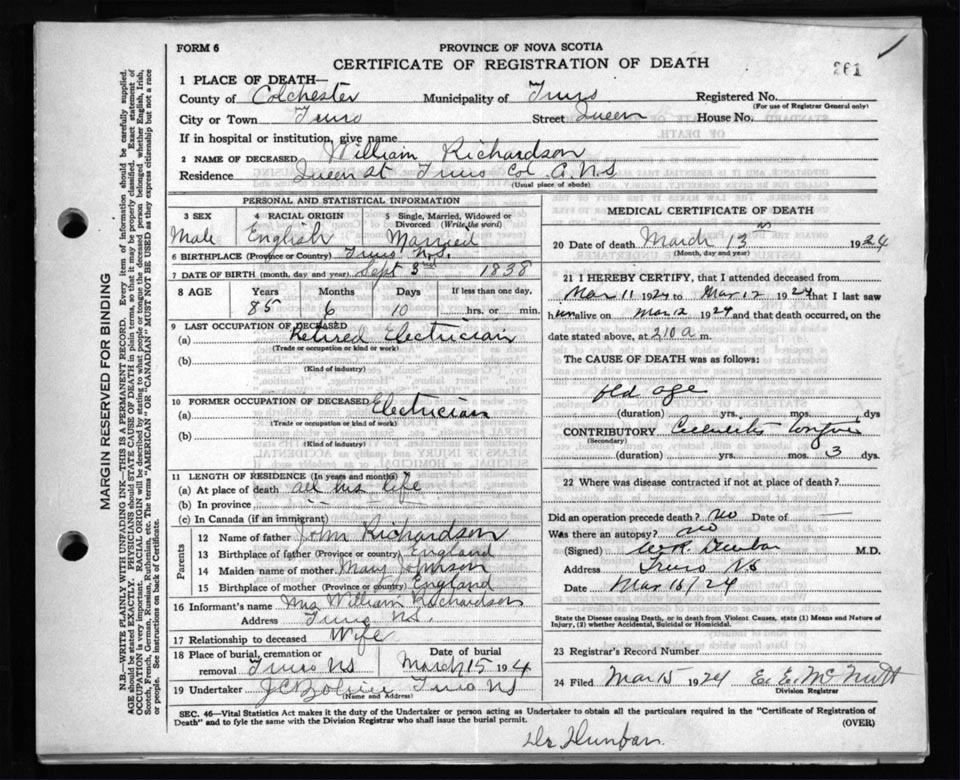 FORM 6
PROVINCE OF NOVA SCOTIA
CERTIFICATE OF REGISTRATION OF DEATH
261
1 PLACE OF DEATH—
County of Colchester Municipality of Truro Registered No.
(For use of Registrar General only)
City or Town Truro Street Queen House No.
If in hospital or institution, give name
2 NAME OF DECEASED William Richardson
Residence Queen st Truro Col. N.S.
(Usual place of abode)
PERSONAL AND STATISTICAL INFORMATION
3 SEX 4 RACIAL ORIGIN 5 Single, Married, Widowed or Divorced (Write the word)
Male English Married
6 BIRTHPLACE (Province or Country) Truro N.S.
7 DATE OF BIRTH (month, day and year) Sept 3rd 1838
8 AGE Years Months Days If less than one day,
85 6 10 hrs. or min.
9 LAST OCCUPATION OF DECEASED
(a) Retired Electrician
(Trade or occupation or kind of work)
(b)
(Kind of industry)
10 FORMER OCCUPATION OF DECEASED
(a) Electrician
(Trade or occupation or kind of work)
(b)
(Kind of industry)
11 LENGTH OF RESIDENCE (In years and months)
(a) At place of death all his life
(b) In province
(c) In Canada (if an immigrant)
Parents
12 Name of father John Richardson
13 Birthplace of father (Province or country) England
14 Maiden name of mother Mary Johnson
15 Birthplace of mother (Province or country) England
16 Informant's name Mrs William Richardson
Address Truro N.S.
17 Relationship to deceased Wife
18 Place of burial, cremation or removal Truro NS Date of burial March 15 1924
19 Undertaker J C Truro NS
(Name and Address)
MEDICAL CERTIFICATE OF DEATH
20 Date of death March 13 1924
(Month, day and year)
21 I HEREBY CERTIFY, that I attended deceased from
Mar 11 1924 to Mar 12 1924 that I last saw
h im alive on Mar 12 1924 and that death occurred, on
date stated above, at 2 10 a m.
The CAUSE OF DEATH was as follows:
old age
(duration) yrs. mos. dys
CONTRIBUTORY
(Secondary)
(duration) yrs. mos. 3 dys.
22 Where was disease contracted if not at place of death?
Did an operation precede death? no Date of
Was there an autopsy? no
(Signed) Dunbar M.D.
Address Truro NS
Date Mar 15/24
State the Disease causing Death, or in death from Violent Causes, state (1) Means and Nature of Injury, (2) whether Accidental, Suicidal or Homicidal.
23 Registrar's Record Number
24 Filed Mar 15 1924 E. E. McNutt
Division Registrar
SEC. 46—Vital Statistics Act makes it the duty of the Undertaker or person acting as Undertaker to obtain all the particulars required in the "Certificate of Registration of
Death" and to fyle the same with the Division Registrar who shall issue the burial permit. (OVER)
Dr Dunbar.
MARGIN RESERVED FOR BINDING
N.B.—WRITE PLAINLY WITH UNFADING INK—THIS IS A PERMANENT RECORD. Every item of information should be carefully supplied.
AGE should be stated EXACTLY. PHYSICIANS should STATE CAUSE OF DEATH in plain terms, so that it may be properly classified. Exact statement of
OCCUPATION is very important. RACIAL ORIGIN will be described by stating to what people or tongue the deceased person belonged whether English, Irish,
Scotch, French, German, Russian, Ruthenian, etc. The terms "AMERICAN OR "CANADIAN" MUST NOT BE USED as they express citizenship but not a race
or people. See instructions on back of Certificate.